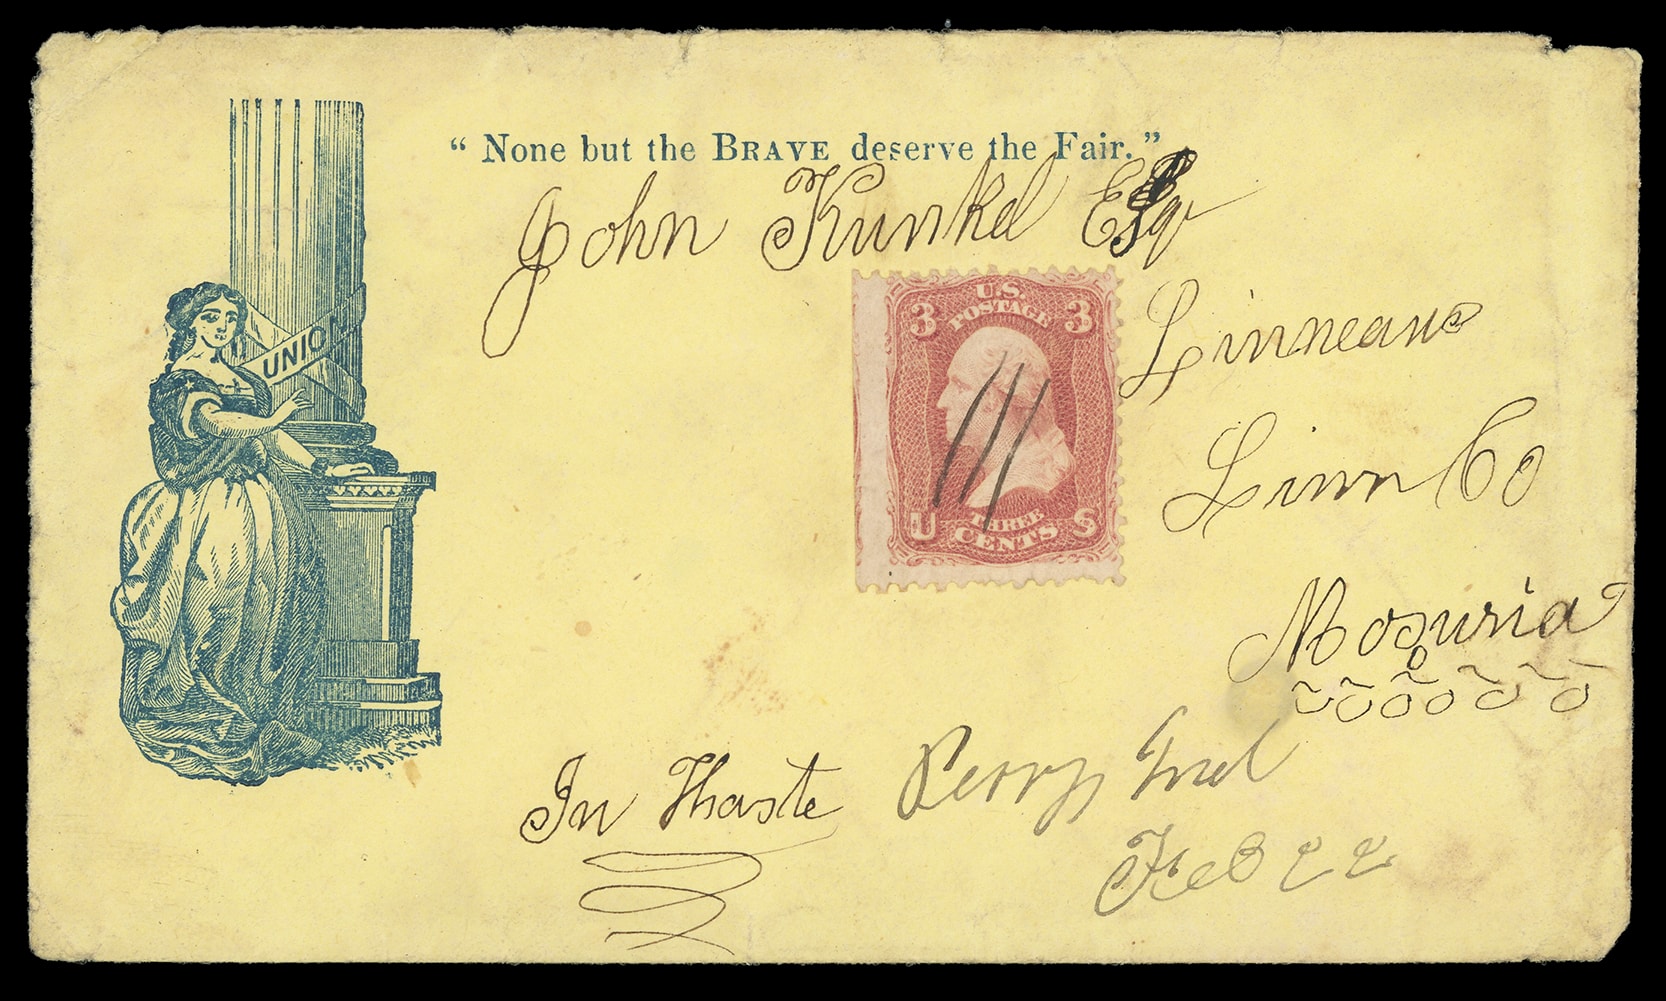 “ None but the BRAVE deserve the Fair. ”
John Kunkel Esqr
UNION
U.S.
POSTAGE
3 3
U THREE S
CENTS
Linneaus
Linn Co
Mosuria
In Haste
Perry Ind
Feb 22